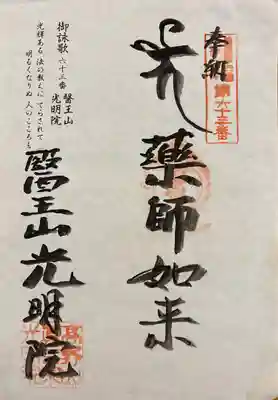 奉納
第六十三番
薬師如来
御詠歌 六十三番 醫王山 光明院
光輝ある 法の教えに てらされて
明るくなりぬ 人のこころも
醫王山光明院